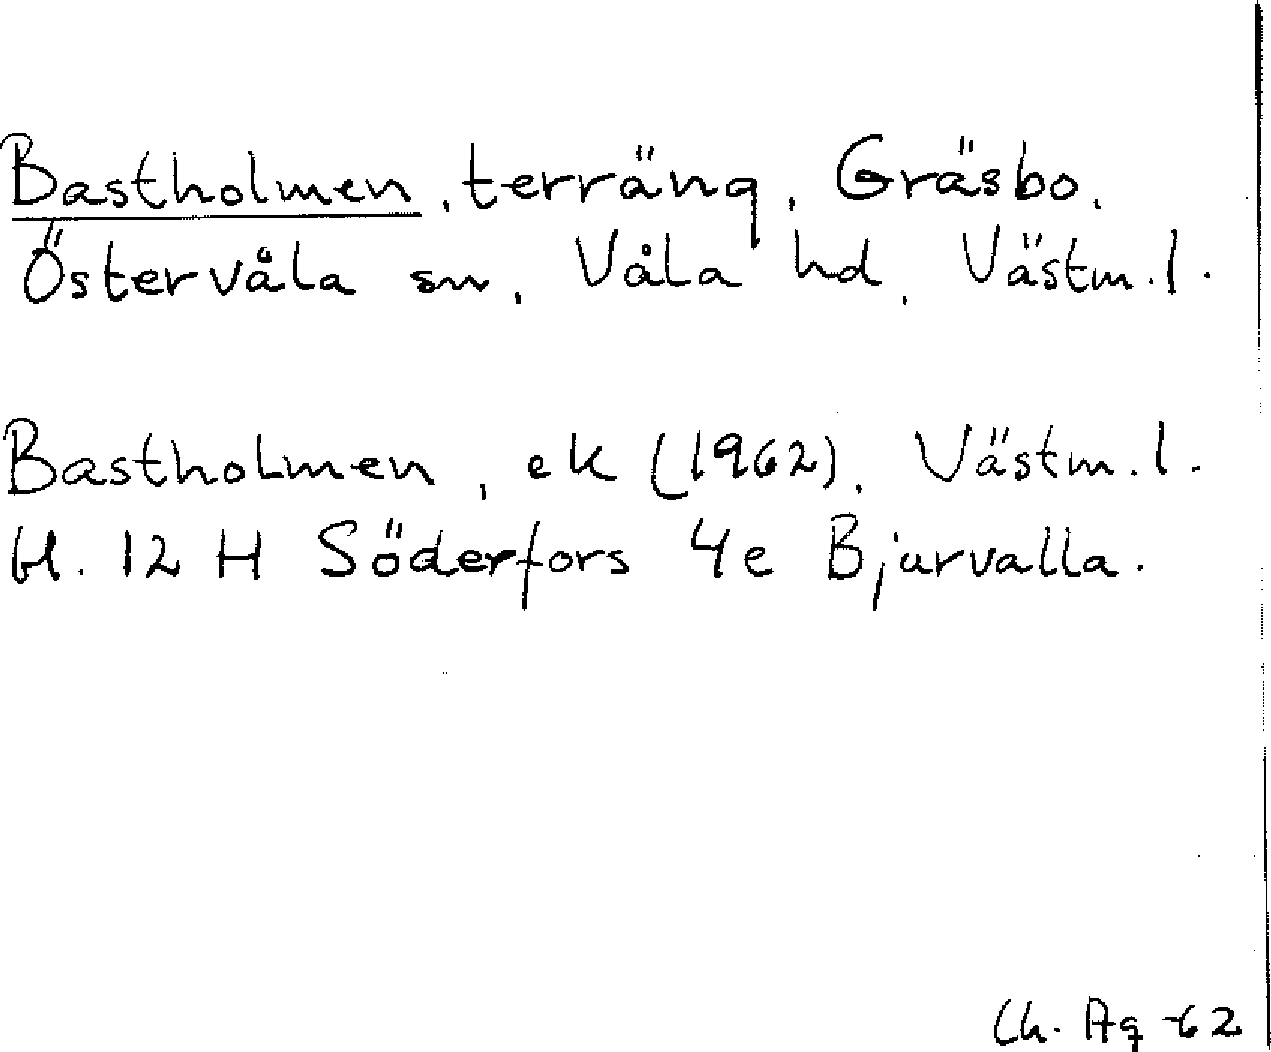 Bastholmen, terräng, Gräsbo,
Östervåla sn, Våla hd, Västm. l.
Bastholmen, ek (1962), Västm. l.
bl. 12 H Söderfors 4e Bjurvalla.
Ch. Ag -62